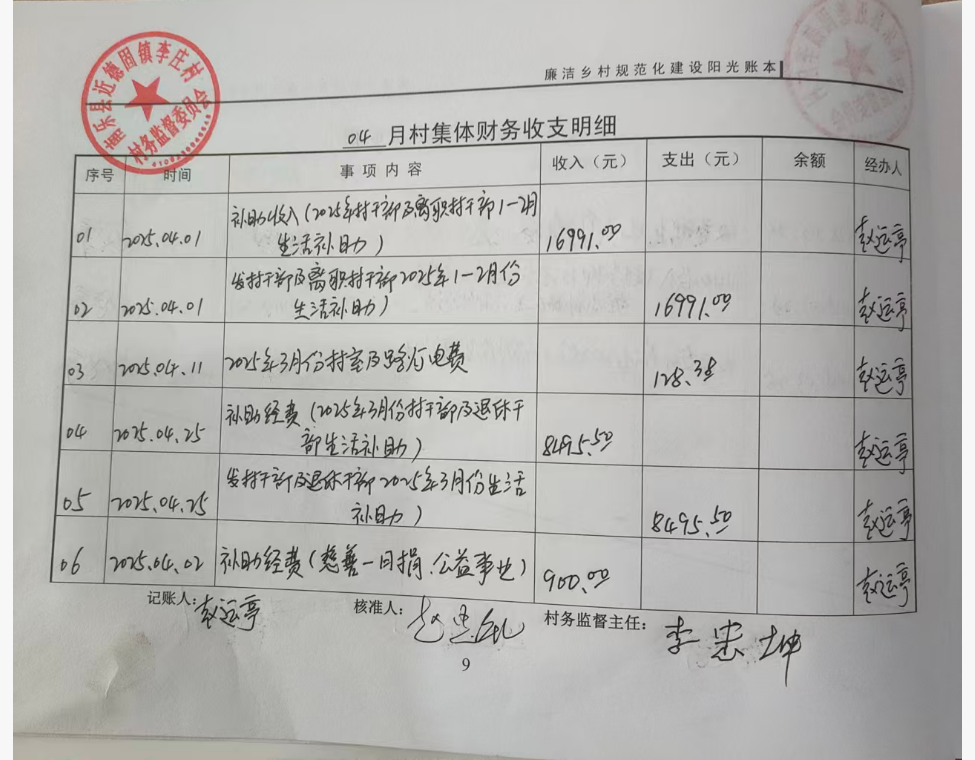 南乐县近德固镇李庄村
村务监督委员会
廉洁乡村规范化建设阳光账本
04 月村集体财务收支明细
序号 时间 事项内容 收入（元） 支出（元） 余额 经办人
01 2025.04.01 补助收入(2025年村干部及离职村干部1-2月生活补助) 16991.00 赵运亭
02 2025.04.01 发村干部及离职村干部2025年1-2月份生活补助) 16991.00 赵运亭
03 2025.04.11 2025年3月份村室及路灯电费 128.38 赵运亭
04 2025.04.25 补助经费(2025年3月份村干部及退休干部生活补助) 8495.50 赵运亭
05 2025.04.25 发村干部及退休干部2025年3月份生活补助) 8495.50 赵运亭
06 2025.04.02 补助经费(慈善一日捐.公益事业) 900.00 赵运亭
记账人: 赵运亭 核准人: 村务监督主任: 李忠坤
9